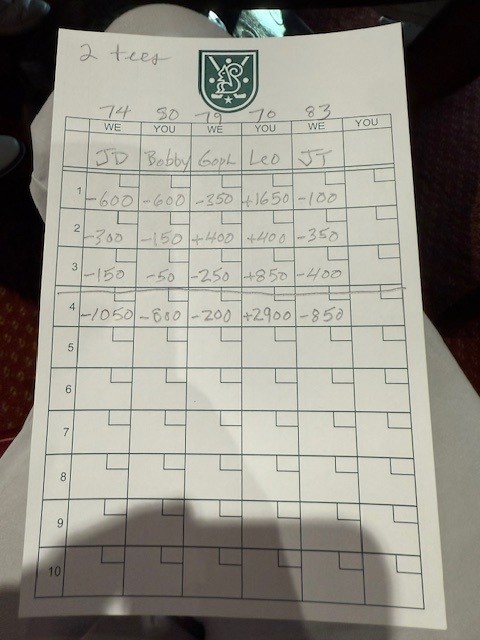 2 tees
74 80 79 70 83
WE YOU WE YOU WE YOU
JD Bobby Goph Leo JT
1 -600 -600 -350 +1650 -100
2 -300 -150 +400 +400 -350
3 -150 -50 -250 +850 -400
4 -1050 -800 -200 +2900 -850
5
6
7
8
9
10